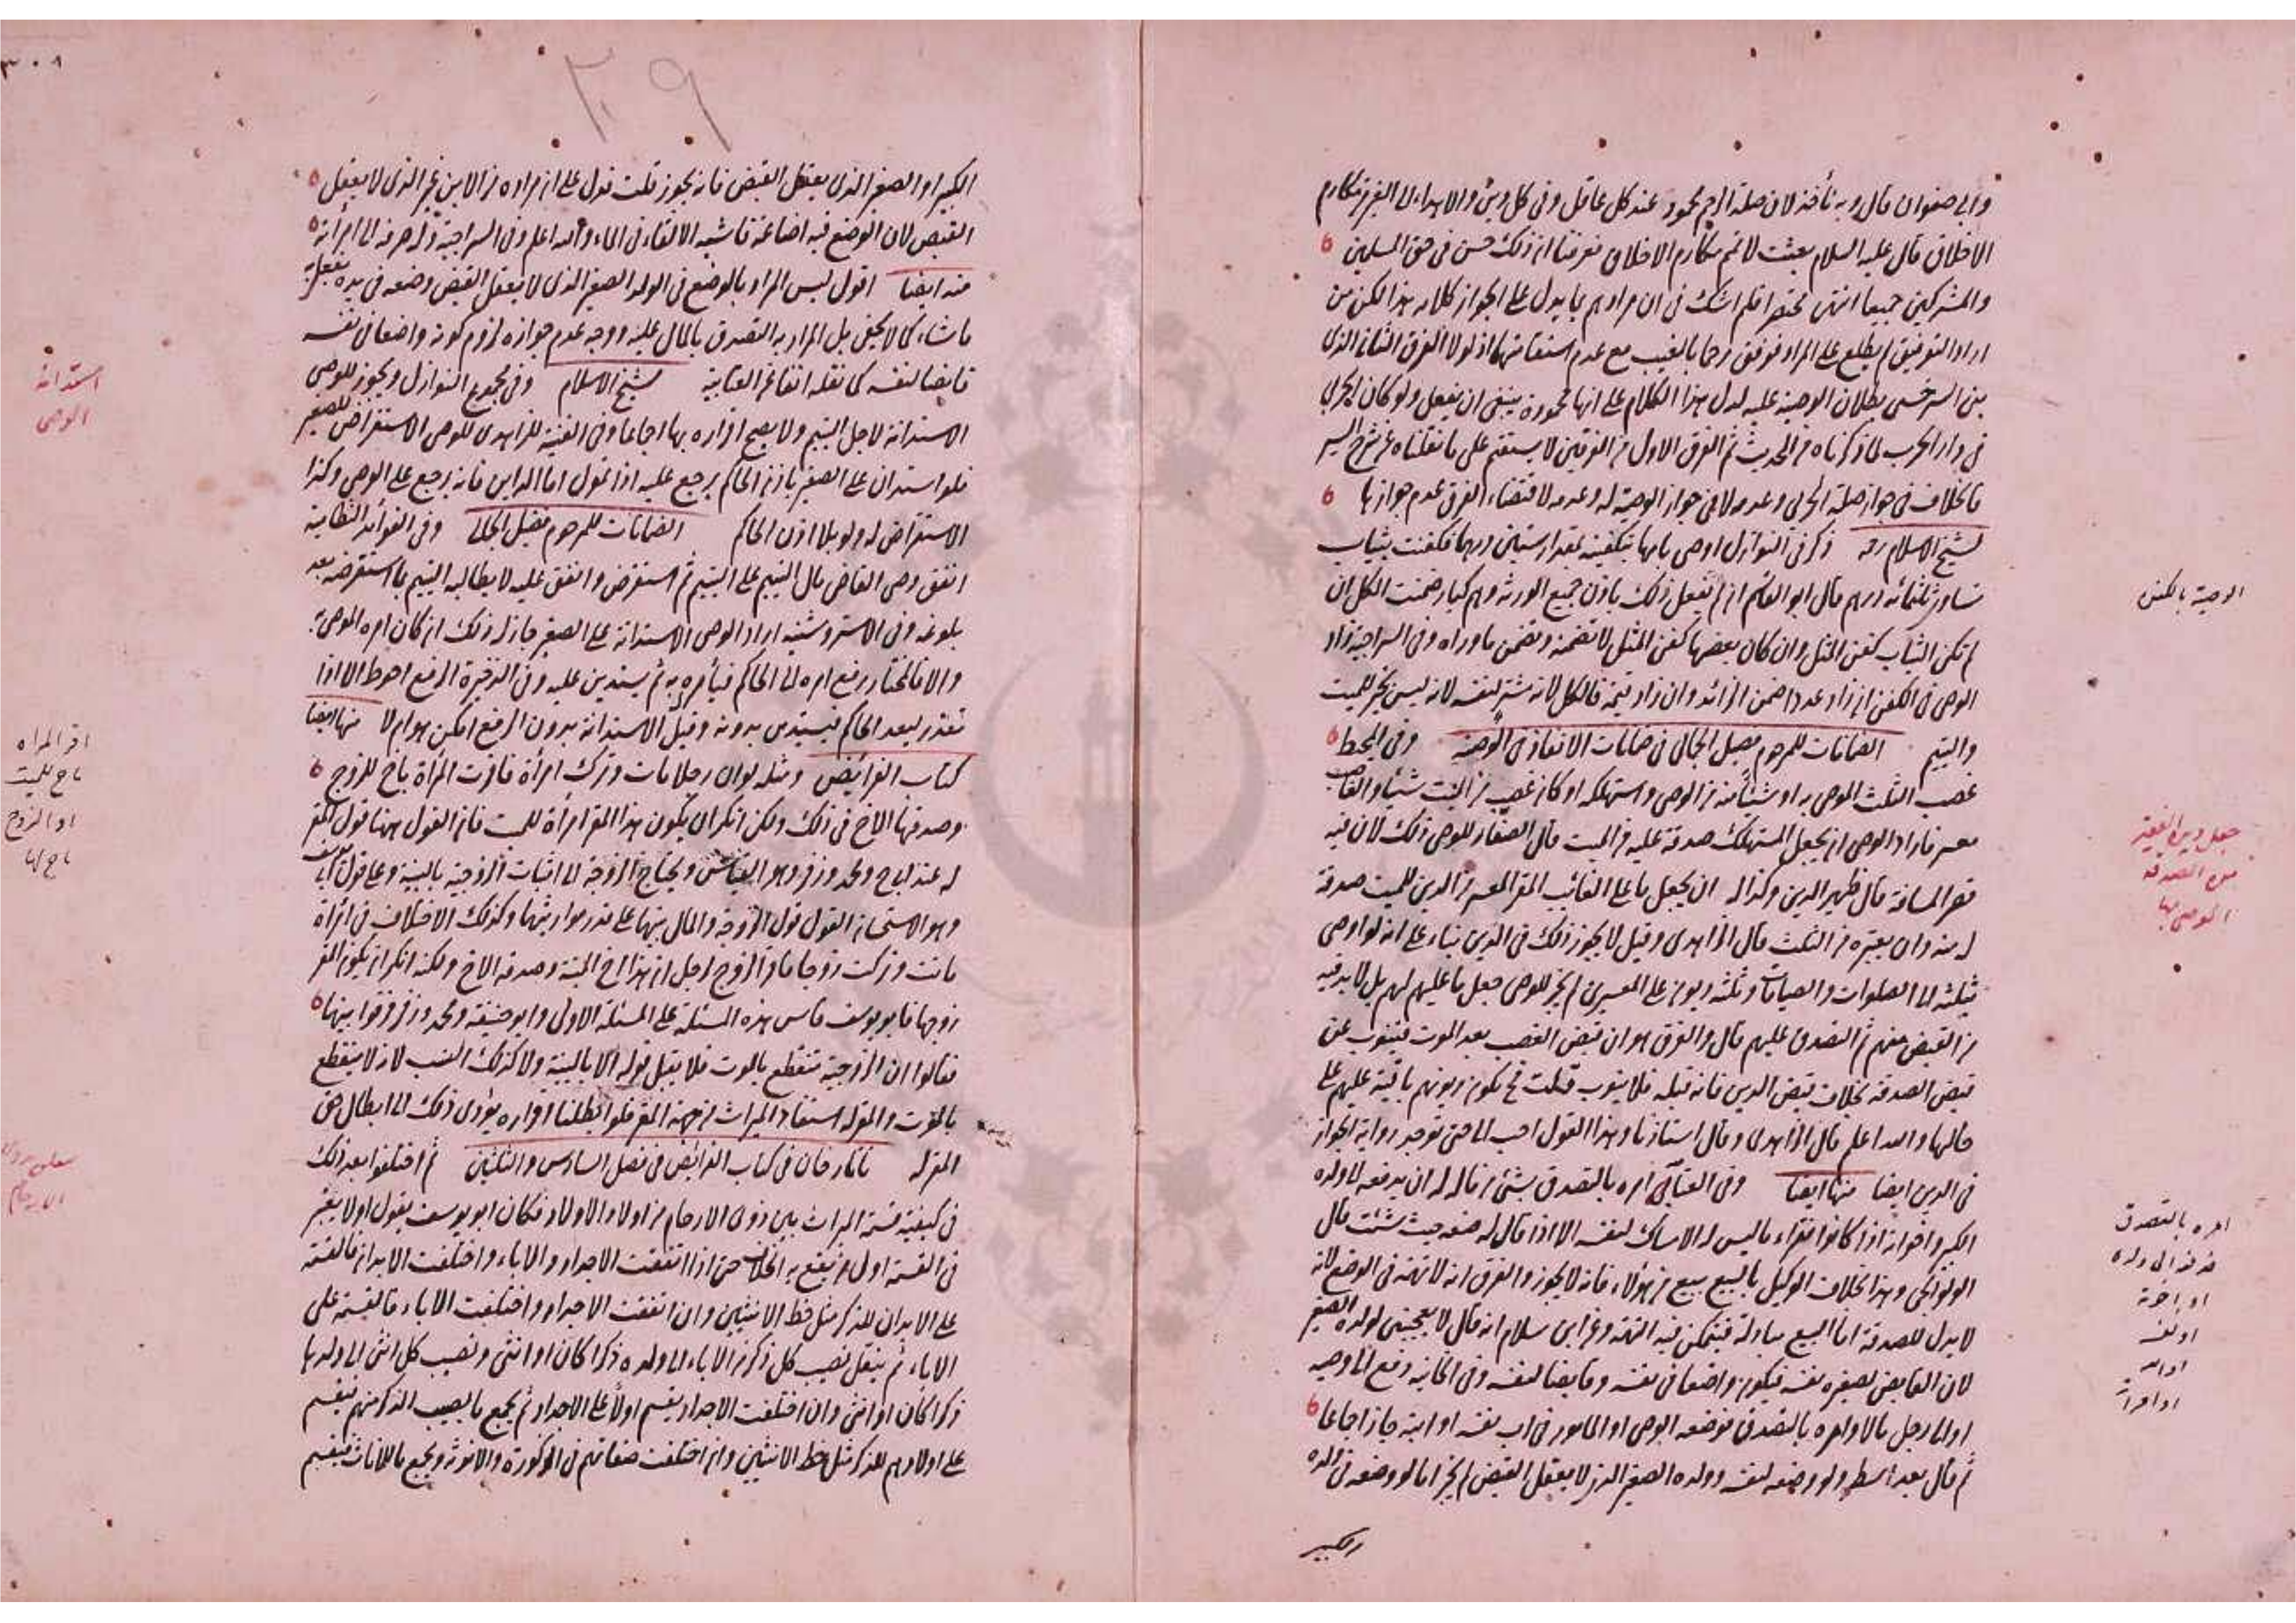 وابي صفوان قال وبه نأخذ لان صلة الرحم محمود عند كل عاقل وفي كل دين والاهداء الى الغير من مكارم
الاخلاق قال عليه السلام بعثت لاتمم مكارم الاخلاق فعرفنا ان ذلك حسن في حق المسلمين
والمشركين جميعا انتهى مختصرا فلم اشك في ان مرادهم ما يدل على الجواز كلامه هذا لكن من
اراد التوفيق لم يطلع على المراد فوفق رجما بالغيب مع عدم استقامتها اذ لولا الفرق الثاني الذي
بين السرخسي بطلان الوصية عليه لدل هذا الكلام على انها محمودة ينبغي ان يفعل ولو كان الحربي
في دار الحرب لما ذكرناه من الحديث ثم الفرق الاول من الفرقين لا يستقيم على ما نقلناه عن شرح السير
فالخلاف في جواز صلة الحربي وعدمه لا في جواز الوصية له وعدمه لاقتضاء الفرق عدم جوازها
لشيخ الاسلام رحه ذكر في النوازل اوصى بانها بتكفينه بمقدار ستين درهما فكفنت بثياب
تساوي ثلثمائة درهم قال ابو القاسم ان لم تفعل ذلك باذن جميع الورثة وهم كبار ضمنت الكل ان
لم تكن الثياب كفن المثل وان كان بعضها كفن المثل لا تضمنه وتضمن ما وراه وفي السراجية زاد
الوصي في الكفن ان زاد عددا ضمن الزائد وان زاد قيمة فالكل لانه مشتر لنفسه لانه ليس بخير للميت
واليتيم الضمانات للمرحوم فضيل الجمالي في ضمانات الانفاذ في الوصية وفي المحيط
غصب الثلث الموصى به او شيئا منه من الوصي واستهلكه او كان غصب من الميت شيئا والغاصب
معسر فاراد الوصي ان يجعل المستهلك صدقة عليه من الميت قال الصفار للوصي ذلك لان فيه
قصر المسافة قال ظهير الدين وكذا له ان يجعل ما على الغائب المقر المعسر من الدين للميت صدقة
له منه وان يعتبره من الثلث قال الزاهدي وقيل لا يجوز ذلك في الدين بناء على انه لو اوصى
بثلثه الى الصلوات والصيامات وثلثه ديون على المعسرين لم يجز للوصي جعل ما عليهم لهم بل لا بد فيه
من القبض منهم ثم التصدق عليهم قال والفرق هو ان قبض الغصب بعد الموت فينوب عن
قبض الصدقة بخلاف قبض الدين فانه قبله فلا ينوب قلت فح تكون ديونهم باقية عليهم على
حالها والله اعلم قال الزاهدي وقال استاذنا وهذا القول احب الى حتى توجد رواية الجواز
في الدين ايضا منها ايضا وفي العتابي امره بالتصدق بشئ من ماله له ان يدفعه الى ولده
الكبير واخوانه اذا كانوا فقراء ما ليس له الامساك لنفسه الا اذا قال له ضعه حيث شئت قال
الولوالجي وهذا بخلاف الوكيل بالبيع يبيع من هؤلاء فانه لا يجوز والفرق انه لا تهمة في الوضع لانه
لا بدل للصدقة اما البيع مبادلة فيتمكن فيه التهمة وعن ابن سلام انه قال لا يعجبني لولده الصغير
لان القابض لصغيره نفسه فيكون واضعا في نفسه وقابضا لنفسه وفي الخانية دفع الى وصيه
او الى رجل مالا وامره بالتصدق فوضعه الوصي او المامور في اب نفسه او ابنه جاز اجماعا
ثم قال بعد اسطر ولو وضعه لنفسه وولده الصغير الذي لا يعقل القبض لم يجز اما لو وضعه في ولده
الكبير
الوصية بالكفن
جعل دين الفقير
من الصدقة
الموصى بها
امره بالتصدق
فدفعه الى ولده
او اخوته
او نفسه
٣٠٨
٣٠٩
الكبير او الصغير الذي يعقل القبض فانه يجوز قلت فدل على ان مراده من الابن غير الذي لا يعقل
القبض لان الوضع فيه اضاعة فاشبه الالقاء في الماء والله اعلم وفي السراجية وله صرفه الى امرأته
منه ايضا اقول ليس المراد بالوضع في الولد الصغير الذي لا يعقل القبض وضعه في يده يفعل به
ما شاء كما لا يخفى بل المراد به التصدق بالمال عليه ووجه عدم جوازه لزوم كونه واضعا في نفسه
قابضا لنفسه كما نقله انفا عن العتابية لشيخ الاسلام وفي مجموع النوازل ويجوز للوصي
الاستدانة لاجل اليتيم ولا يصح اقراره بها اجماعا وفي القنية للزاهدي للوصي الاستقراض للصغير
فلو استدان على الصغير باذن الحاكم يرجع عليه اذا تمول اما الداين فانه يرجع على الوصي وكذا
الاستقراض له ولو بلا اذن الحاكم الضمانات للمرحوم فضيل الجمالي وفي الفوائد النظامية
انفق وصي القاضي مال اليتيم على اليتيم ثم استقرض وانفق عليه لا يطالبه اليتيم ما استقرضه بعد
بلوغه وفي الاستروشنيه اراد الوصي الاستدانة على الصغير جاز له ذلك ان كان امره الموصي به
والا فالمختار رفع امره الى الحاكم فيأمره به ثم يستدين عليه وفي الذخيرة الرفع احوط الا اذا
تعذر لبعد الحاكم فيستدين بدونه وقيل الاستدانة بدون الرفع امكن هو ام لا منها ايضا
كتاب الفرائض ومثله لو ان رجلا مات وترك امرأة فاقرت المرأة باخ للزوج
وصدقها الاخ في ذلك ولكن انكر ان يكون هذا المقر امرأة للميت فان القول ههنا قول المقر
له عند ابي ح ومحمد وزفر وهو القياس ويحتاج الزوجة الى اثبات الزوجية بالبينة وعلى قول ابي يوسف
وهو الاستحسان القول قول الزوجة والمال بينهما على قدر مواريثهما وكذلك الاختلاف في امرأة
ماتت وتركت زوجا فاقر الزوج لرجل ان هذا اخ الميتة وصدقه الاخ ولكنه انكر ان يكون المقر
زوجها فابو يوسف قاس هذه المسئلة على المسئلة الاولى وابو حنيفة ومحمد وزفر فرقوا بينهما
فقالوا ان الزوجية تنقطع بالموت فلا يقبل قوله الا بالبينة ولا كذلك النسب لانه لا ينقطع
بالموت والمقر له استفاد الميراث من جهة المقر فلو ابطلنا اقراره يؤدى ذلك الى ابطال حق
المقر له تاتارخان في كتاب الفرائض في فصل السادس والثلثين ثم اختلفوا بعد ذلك
في كيفية قسمة الميراث بين ذوى الارحام من اولاد الاولاد فكان ابو يوسف يقول اولا يعتبر
في القسمة اول من يقع به الخلاف حتى اذا اتفقت الاجداد والاباء واختلفت الابدان فالقسمة
على الابدان للذكر مثل حظ الانثيين وان اتفقت الاجداد واختلفت الاباء فالقسمة على
الاباء ثم ينقل نصيب كل ذكر من الاباء الى ولده ذكرا كان او انثى ونصيب كل انثى الى ولدها
ذكرا كان او انثى وان اختلفت الاجداد يقسم اولا على الاجداد ثم يجمع ما يصيب الذكر منهم فيقسم
على اولادهم للذكر مثل حظ الانثيين وان اختلفت صفاتهم في الذكورة والانوثة ويجمع ما للاناث فيقسم
استدانة
الوصي
اقر المراه
باخ للميت
او الزوج
باخ لها